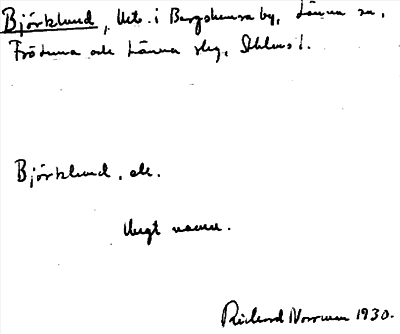 Björklund, lht. i Bergshamra by, Länna sn,
Frötuna och Länna slg, Sthlms l.
Björklund, ələ.
Ungt namn.
Rickard Norrman 1930.